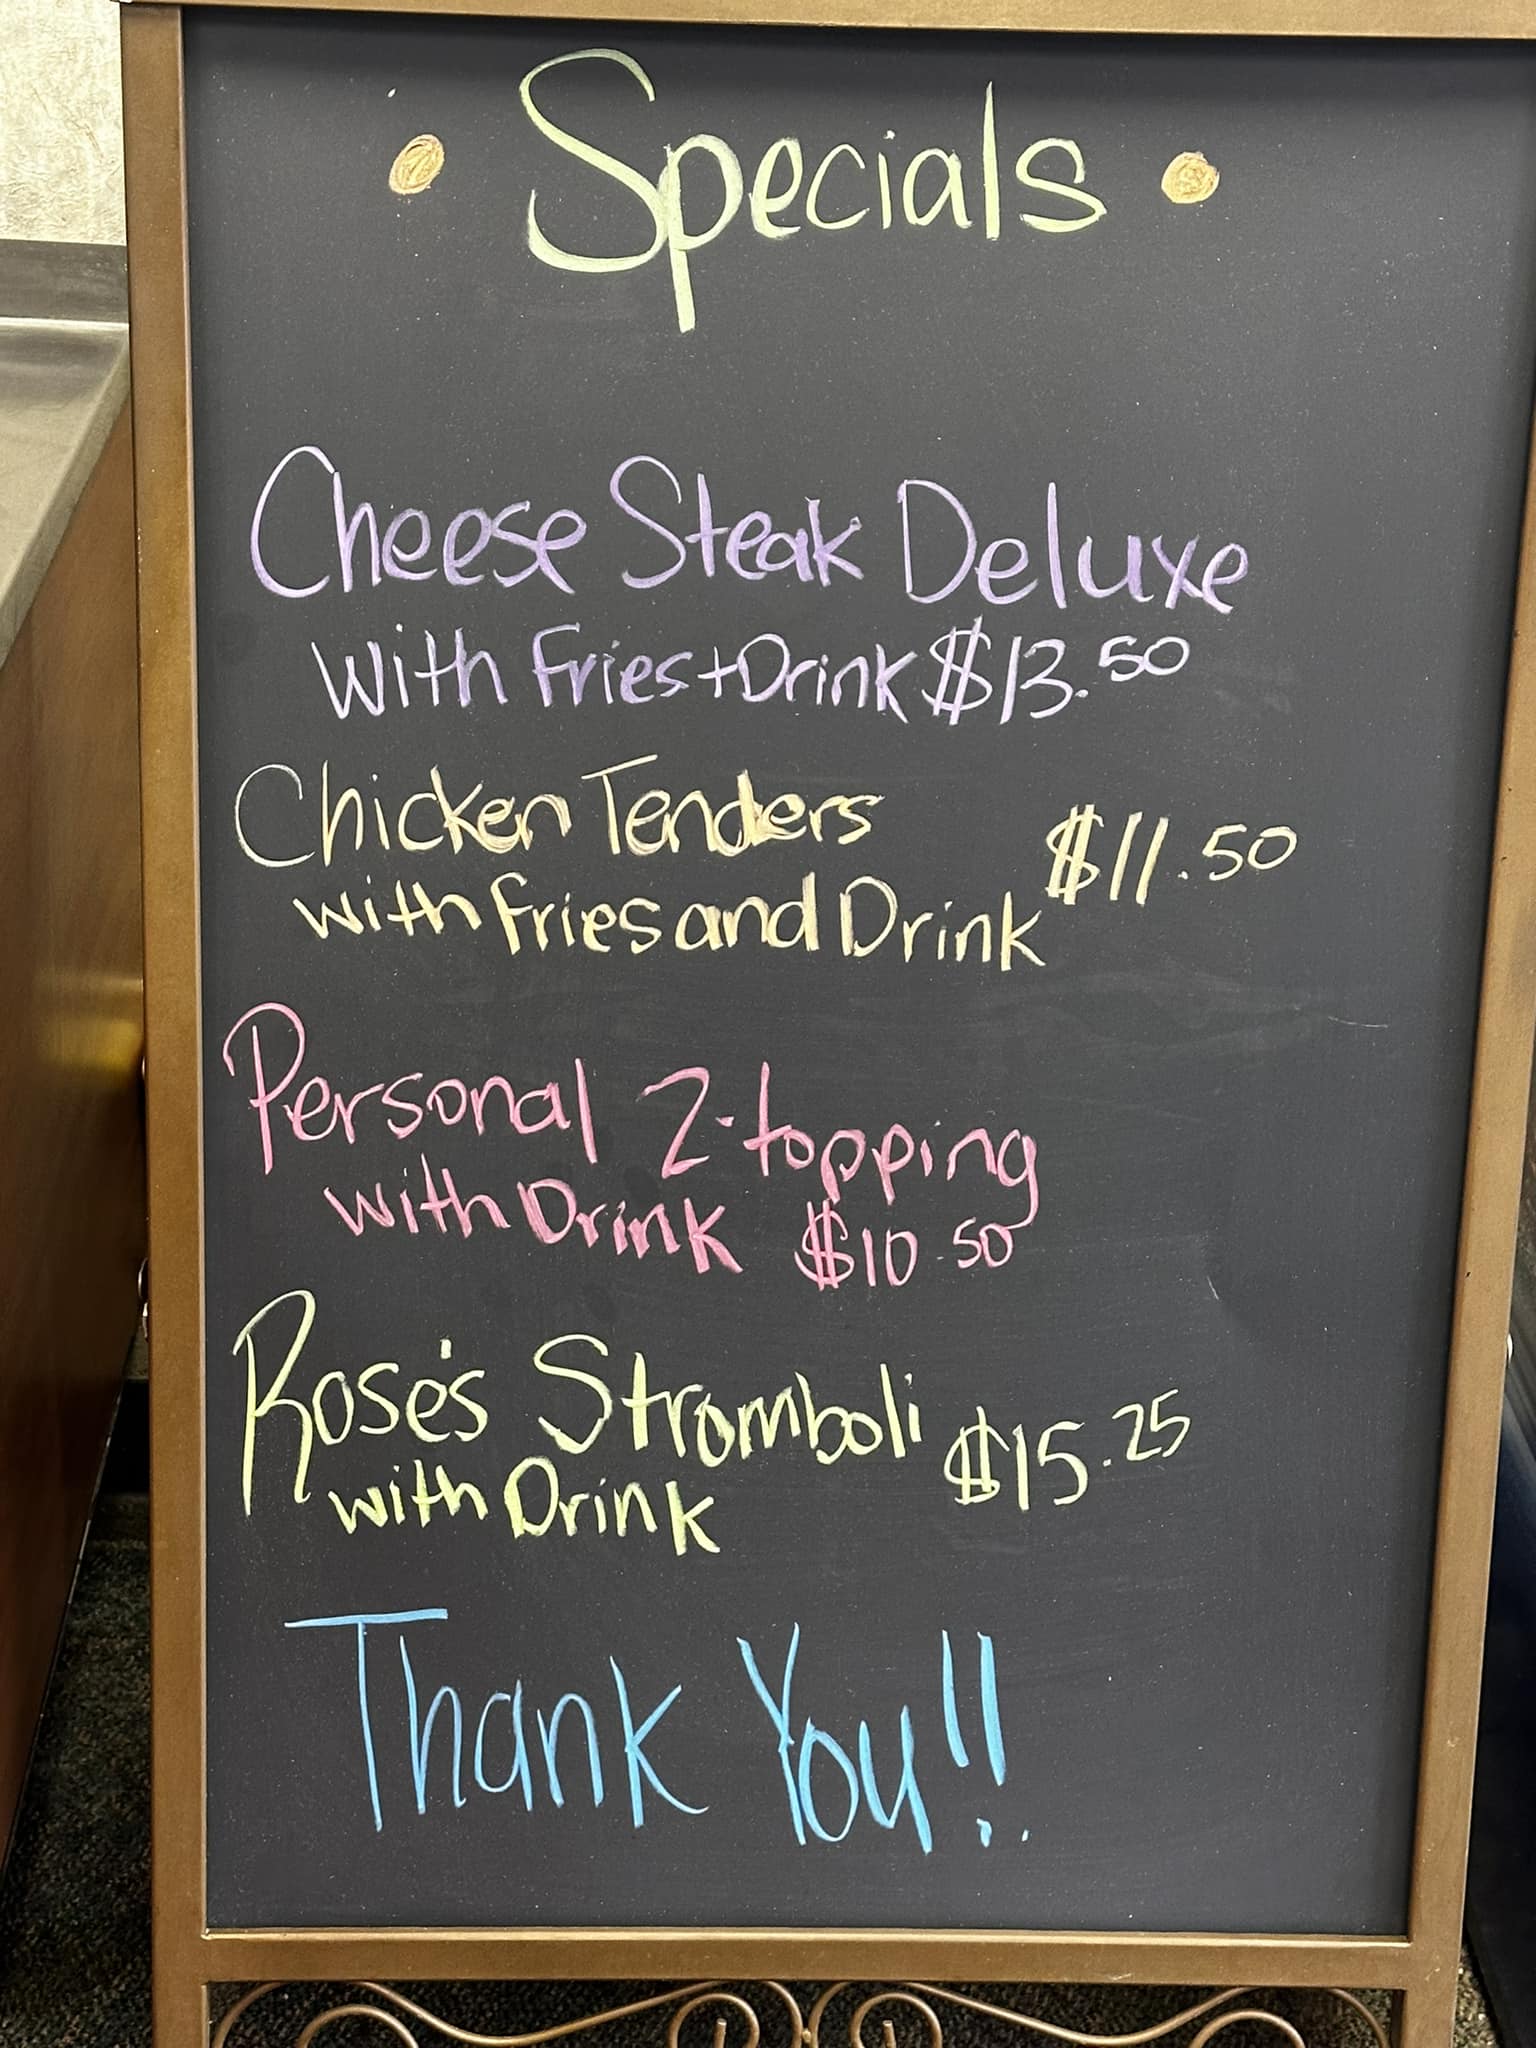 Specials
Cheese Steak Deluxe
with Fries + Drink $13.50
Chicken Tenders
with Fries and Drink $11.50
Personal 2-topping
with Drink $10.50
Rose's Stromboli $15.25
with Drink
Thank You!!